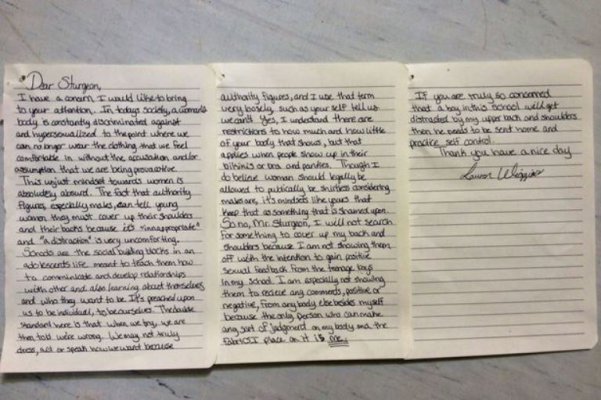 Dear Sturgeon,
I have a concern, I would like to bring
to your attention. In todays society, a woman's
body is constantly discriminated against
and hypersexualized to the point where we
can no longer wear the clothing that we feel
comfortable in without the accusation and/or
assumption that we are being provocative.
This unjust mindset towards women is
absolutely absurd. The fact that authority
figures, especially males, can tell young
women they must cover up their shoulders
and their backs because it's "innappropriate"
and "a distraction" is very uncomforting.
Schools are the social building blocks in an
adolescents life meant to teach them how
to communicate and develop relationships
with other and also learning about themselves
and who they want to be. It's preached upon
us to be individual, to be ourselves. The double
standard here is that when we try, we are
then told we're wrong. We may not truly
dress, act or speak how we want because
authority figures, and I use that term
very loosely, such as your self tell us
we can't. Yes, I understand there are
restrictions to how much and how little
of your body that shows, but that
applies when people show up in their
bikinis or bras and panties. Though I
do believe woman should legally be
allowed to publically be shirtless considering
males are, it's mindsets like yours that
keep that as something that is shamed upon.
So no, Mr. Sturgeon, I will not search
for something to cover up my back and
shoulders because I am not showing them
off with the intention to gain positive
sexual feedback from the teenage boys
in my school. I am especially not showing
them to recieve any comments, positive or
negative, from any body else besides myself
because the only person who can make
any sort of judgement on my body and the
fabrics I place on it is me.
If you are truly so concerned
that a boy in this school will get
distracted by my upper back and shoulders
then he needs to be sent home and
practice self control.
Thank you have a nice day
Lauren Wiggins